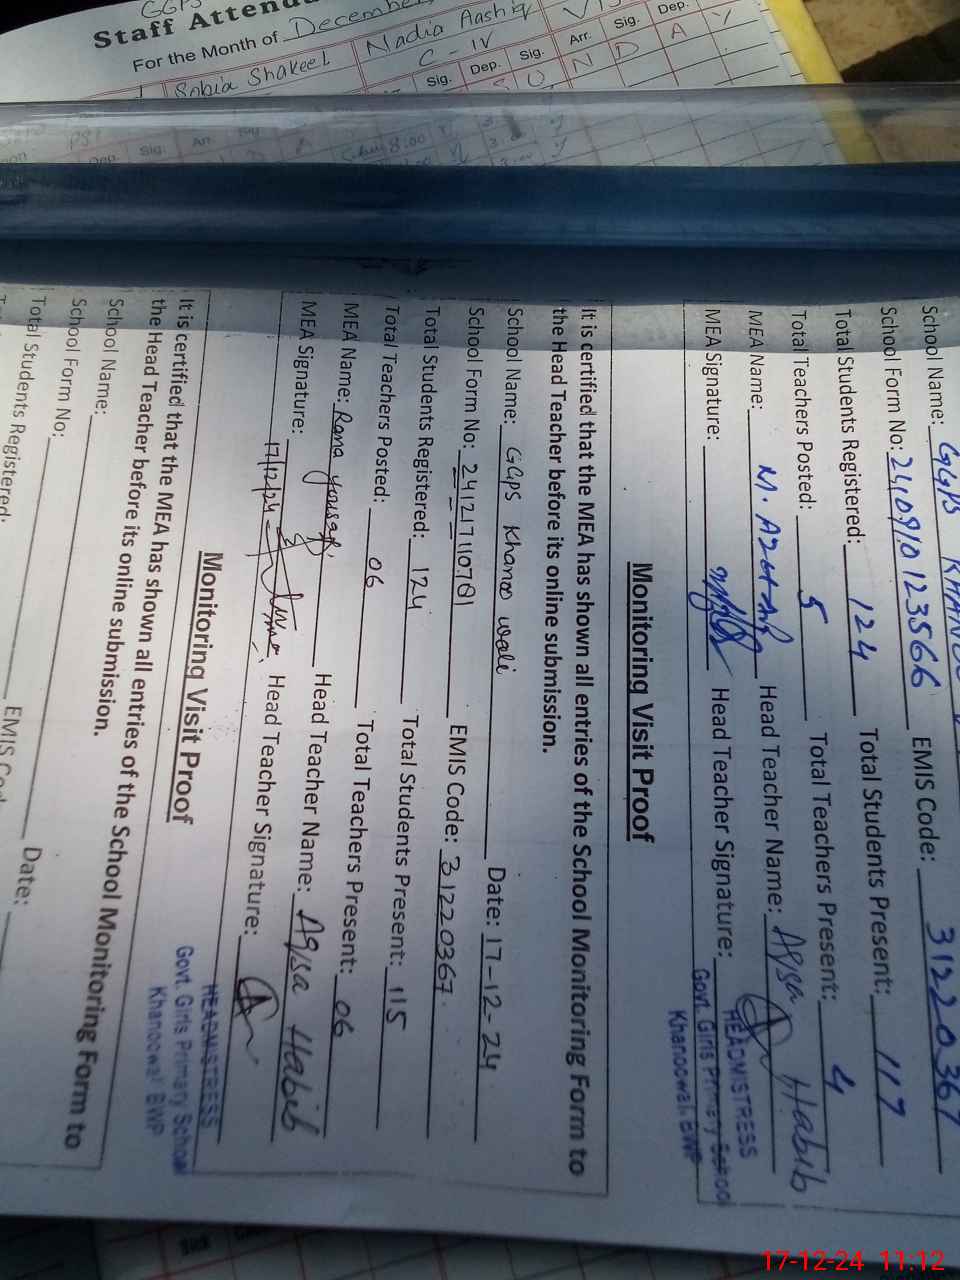 Staff Attend
For the Month of December
Sobia Shakeel
Nadia Aashiq
C-IV
Sig. Dep. Sig. Arr. Sig. Dep.
S U N D A Y
PST
Dep. Sig. Arr. Sig.
8:00
School Name: GGPS KHANO
School Form No: 240910123566 EMIS Code: 31220367
Total Students Registered: 124 Total Students Present: 117
Total Teachers Posted: 5 Total Teachers Present: 4
MEA Name: M. Head Teacher Name: Aqsa Habib
MEA Signature: Head Teacher Signature:
HEADMISTRESS
Govt. Girls Primary School
Khanoowali BWP
Monitoring Visit Proof
It is certified that the MEA has shown all entries of the School Monitoring Form to
the Head Teacher before its online submission.
School Name: GGPS Khanoo wali Date: 17-12-24
School Form No: 24121710781 EMIS Code: 31220367
Total Students Registered: 124 Total Students Present: 115
Total Teachers Posted: 06 Total Teachers Present: 06
MEA Name: Rana Yousaf Head Teacher Name: Aqsa Habib
MEA Signature: Head Teacher Signature:
17/12/24
HEADMISTRESS
Govt. Girls Primary School
Khanoowali BWP
Monitoring Visit Proof
It is certified that the MEA has shown all entries of the School Monitoring Form to
the Head Teacher before its online submission.
School Name:
School Form No: Date:
Total Students Registered: EMIS Cod
17-12-24 11:12